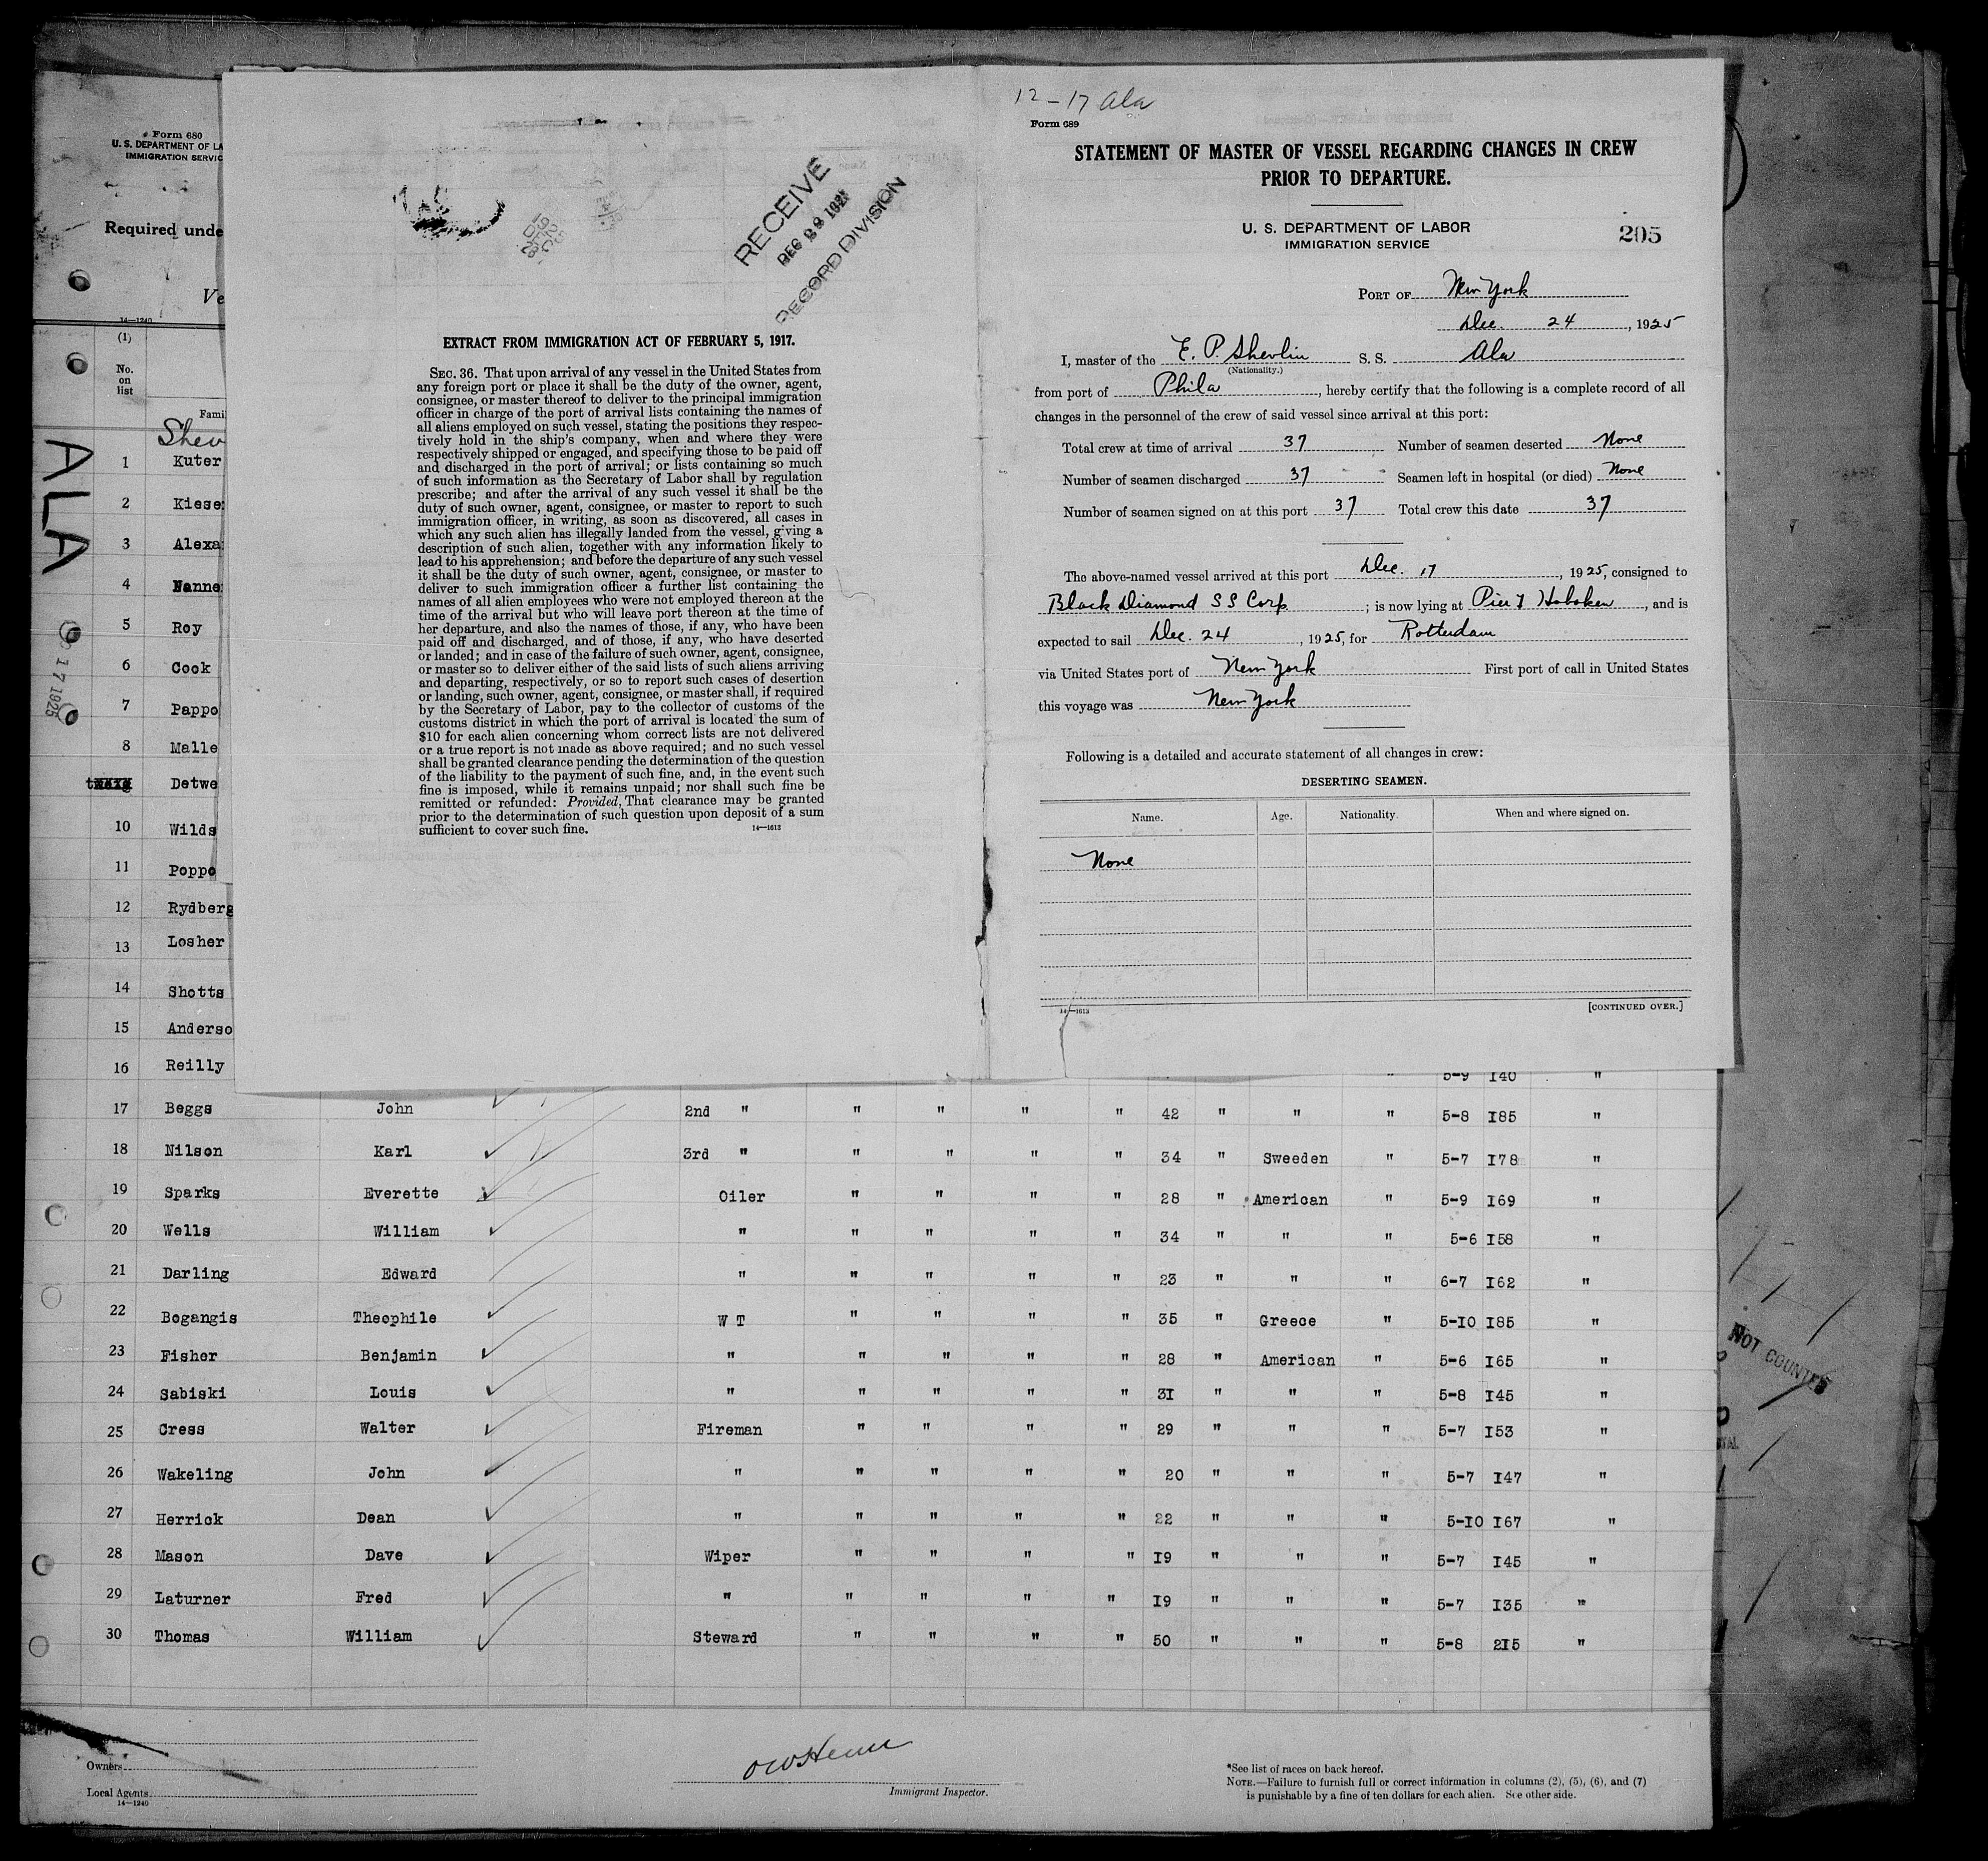 Form 680
U. S. DEPARTMENT OF LA
IMMIGRATION SERVIC
Required unde
Ve
14—1240
(1)
No.
on
list
Fami
Shev
ALA
17 1925
1 Kuter
2 Kiese
3 Alexa
4 Nanne
5 Roy
6 Cook
7 Pappo
8 Malle
Detwe
10 Wilds
11 Poppo
12 Rydberg
13 Losher
14 Shotts
15 Anderso
16 Reilly
RECEIVE
DEC 28 192
RECORD DIVISION
EXTRACT FROM IMMIGRATION ACT OF FEBRUARY 5, 1917.
SEC. 36. That upon arrival of any vessel in the United States from
any foreign port or place it shall be the duty of the owner, agent,
consignee, or master thereof to deliver to the principal immigration
officer in charge of the port of arrival lists containing the names of
all aliens employed on such vessel, stating the positions they respec-
tively hold in the ship's company, when and where they were
respectively shipped or engaged, and specifying those to be paid off
and discharged in the port of arrival; or lists containing so much
of such information as the Secretary of Labor shall by regulation
prescribe; and after the arrival of any such vessel it shall be the
duty of such owner, agent, consignee, or master to report to such
immigration officer, in writing, as soon as discovered, all cases in
which any such alien has illegally landed from the vessel, giving a
description of such alien, together with any information likely to
lead to his apprehension; and before the departure of any such vessel
it shall be the duty of such owner, agent, consignee, or master to
deliver to such immigration officer a further list containing the
names of all alien employees who were not employed thereon at the
time of the arrival but who will leave port thereon at the time of
her departure, and also the names of those, if any, who have been
paid off and discharged, and of those, if any, who have deserted
or landed; and in case of the failure of such owner, agent, consignee,
or master so to deliver either of the said lists of such aliens arriving
and departing, respectively, or so to report such cases of desertion
or landing, such owner, agent, consignee, or master shall, if required
by the Secretary of Labor, pay to the collector of customs of the
customs district in which the port of arrival is located the sum of
$10 for each alien concerning whom correct lists are not delivered
or a true report is not made as above required; and no such vessel
shall be granted clearance pending the determination of the question
of the liability to the payment of such fine, and, in the event such
fine is imposed, while it remains unpaid; nor shall such fine be
remitted or refunded: Provided, That clearance may be granted
prior to the determination of such question upon deposit of a sum
sufficient to cover such fine. 14—1613
12-17 Ala
Form 689
STATEMENT OF MASTER OF VESSEL REGARDING CHANGES IN CREW
PRIOR TO DEPARTURE.
U. S. DEPARTMENT OF LABOR
IMMIGRATION SERVICE
205
PORT OF New York
Dec. 24, 1925
I, master of the E. P. Shevlin S. S. Ala
(Nationality.)
from port of Phila, hereby certify that the following is a complete record of all
changes in the personnel of the crew of said vessel since arrival at this port:
Total crew at time of arrival 37 Number of seamen deserted None
Number of seamen discharged 37 Seamen left in hospital (or died) None
Number of seamen signed on at this port 37 Total crew this date 37
The above-named vessel arrived at this port Dec. 17, 1925, consigned to
Black Diamond S S Corp; is now lying at Pier 7 Hoboken, and is
expected to sail Dec. 24, 1925, for Rotterdam
via United States port of New York First port of call in United States
this voyage was New York
Following is a detailed and accurate statement of all changes in crew:
DESERTING SEAMEN.
Name. Age. Nationality. When and where signed on.
None
14—1613 [CONTINUED OVER.]
" 5-9 140 "
17 Beggs John 2nd " " " " " 42 " " " 5-8 185 "
18 Nilson Karl 3rd " " " " " 34 " Sweeden " 5-7 178 "
19 Sparks Everette Oiler " " " " 28 " American " 5-9 169 "
20 Wells William " " " " " 34 " " " 5-6 158 "
21 Darling Edward " " " " " 23 " " " 6-7 162 "
22 Bogangis Theophile W T " " " " 35 " Greece " 5-10 185 "
23 Fisher Benjamin " " " " " 28 " American " 5-6 165 "
24 Sabiski Louis " " " " " 31 " " " 5-8 145 "
25 Cress Walter Fireman " " " " 29 " " " 5-7 153 "
26 Wakeling John " " " " " 20 " " " 5-7 147 "
27 Herrick Dean " " " " " 22 " " " 5-10 167 "
28 Mason Dave Wiper " " " " 19 " " " 5-7 145 "
29 Laturner Fred " " " " " 19 " " " 5-7 135 "
30 Thomas William Steward " " " " 50 " " " 5-8 215 "
NOT COUNTED
Owners
Local Agents
14—1240
Immigrant Inspector.
*See list of races on back hereof.
NOTE.—Failure to furnish full or correct information in columns (2), (5), (6), and (7)
is punishable by a fine of ten dollars for each alien. See other side.